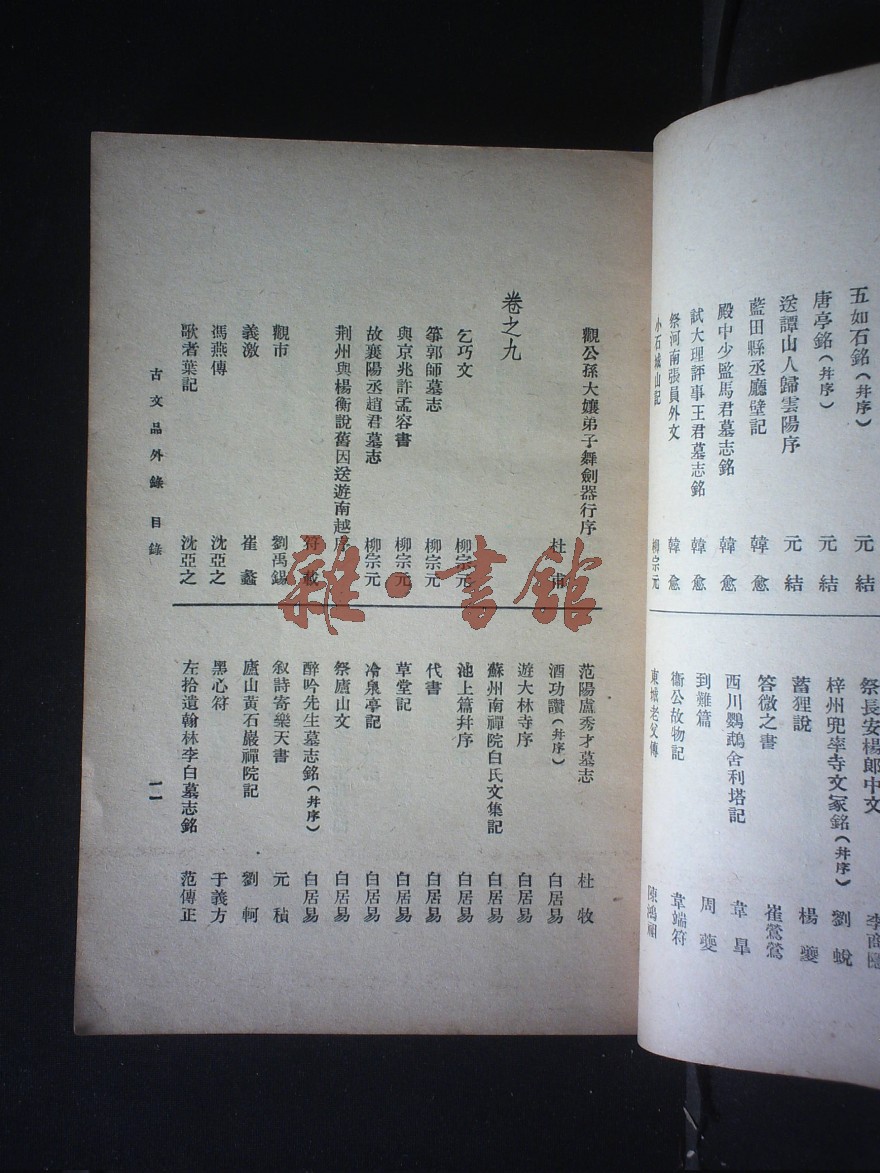 五如石銘(幷序) 元結
唐亭銘(幷序) 元結
送譚山人歸雲陽序 元結
藍田縣丞廳壁記 韓愈
殿中少監馬君墓志銘 韓愈
試大理評事王君墓志銘 韓愈
祭河南張員外文 韓愈
小石城山記 柳宗元
祭長安楊郎中文 李商隱
梓州兜率寺文冢銘(幷序) 劉蛻
蓄狸說 楊夔
答微之書 崔鶯鶯
西川鸚鵡舍利塔記 韋皐
到難篇 周夔
衞公故物記 韋端符
東城老父傳 陳鴻祖
觀公孫大孃弟子舞劍器行序 杜甫
卷之九
乞巧文 柳宗元
箏郭師墓志 柳宗元
與京兆許孟容書 柳宗元
故襄陽丞趙君墓志 柳宗元
荆州與楊衡說舊因送遊南越序
符載
觀市 劉禹錫
義激 崔蠡
馮燕傳 沈亞之
歌者葉記 沈亞之
范陽盧秀才墓志 杜牧
酒功讚(幷序) 白居易
遊大林寺序 白居易
蘇州南禪院白氏文集記 白居易
池上篇幷序 白居易
代書 白居易
草堂記 白居易
冷泉亭記 白居易
祭廬山文 白居易
醉吟先生墓志銘(幷序) 白居易
叙詩寄樂天書 元稹
廬山黃石巖禪院記 劉軻
黑心符 于義方
左拾遺翰林李白墓志銘 范傳正
古文品外錄 目錄
一一
雜·書館